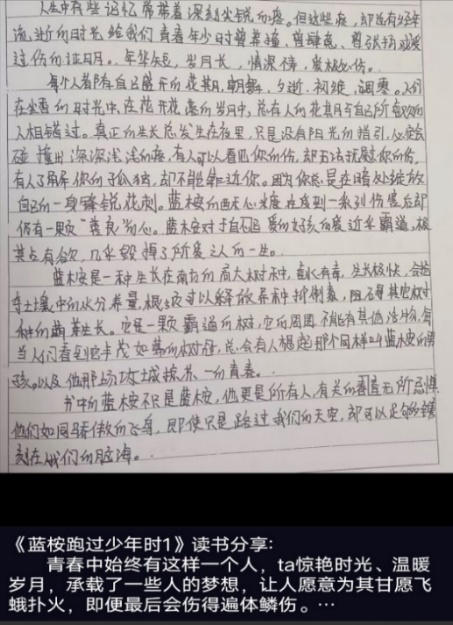 人生中有些记忆常带着深刻尖锐的疼。但这些疼，却没有好年
逝的时光给我们青春年少时曾莽撞、曾肆意、曾张扬或爱
过伤的证明。年华长，岁月长，情深
每个人都有自己盛开的花期，朝舞、夕逝、初绽、凋零。人们
在坐看的时光中，在花开花意的岁月中，总有人的花期与自己所
人相错过。真正的生长总发生在夜里，只是没有阳光的指引，必定会
碰撞出深深浅浅的疼，有人可以看见你的伤，却无法抚慰你的伤。
有人了解你的孤独，却不能靠近你。因为你总是在暗处绽放
自己的一身尖锐花刺。蓝桉的
仍有一颗"善良"的心。蓝桉对于自己爱的女孩的爱近乎霸道，极
其占有欲，几乎毁掉了所爱之人的一生。
蓝桉是一种生长在南方的高大树种，有毒，生长极快，会抢
夺土壤中的水分养量，根须可以释放异种抑制素，阻碍其它树
种的萌芽生长。它是一颗霸道的树，它的周围不能有其他活物，
当人们看到它的树冠，总会有人想起那个同样叫蓝桉的男
孩。以及他那场攻城掠第一的青春。
书中的蓝桉不只是蓝桉，他更是所有人，有关的青春无所忌惮
他们如同骄傲的飞鸟，即使只是路过我们的天空，却可以足够镌
刻在我们的脑海。
《蓝桉跑过少年时1》读书分享：
青春中始终有这样一个人，ta惊艳时光、温暖
岁月，承载了一些人的梦想，让人愿意为其甘愿飞
蛾扑火，即便最后会伤得遍体鳞伤。…